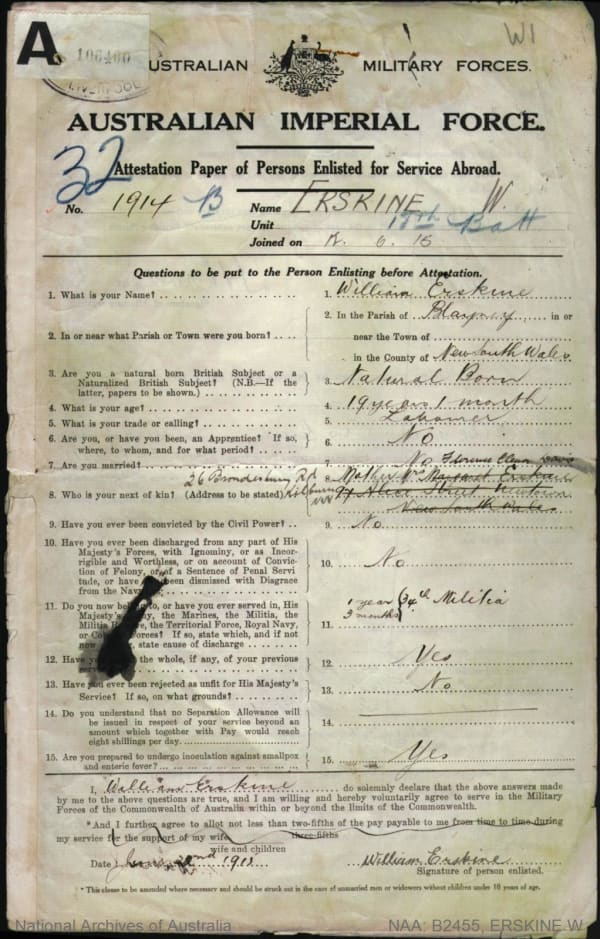 A
106400
AUSTRALIAN MILITARY FORCES.
W1
AUSTRALIAN IMPERIAL FORCE.
32
Attestation Paper of Persons Enlisted for Service Abroad.
No. 1914 B Name ERSKINE W.
Unit Batt
Joined on 6. 15
Questions to be put to the Person Enlisting before Attestation.
1. What is your Name? 1. William Erskine
2. In or near what Parish or Town were you born? 2. In the Parish of Blayney in or
near the Town of
in the County of New South Wales
3. Are you a natural born British Subject or a
Naturalized British Subject? (N.B.—If the
latter, papers to be shown.) 3. Natural Born
4. What is your age? 4. 19 years 1 month
5. What is your trade or calling? 5. Labourer
6. Are you, or have you been, an Apprentice? If so,
where, to whom, and for what period? 6. No
7. Are you married? 7. No Florence
26 Brondesbury Rd
Kilburn
8. Who is your next of kin? (Address to be stated) 8. Mother Mrs Margaret Erskine
Alice Street Newtown
New South Wales
9. Have you ever been convicted by the Civil Power? 9. No
10. Have you ever been discharged from any part of His
Majesty's Forces, with Ignominy, or as Incor-
rigible and Worthless, or on account of Convic-
tion of Felony, or of a Sentence of Penal Servi
tude, or have been dismissed with Disgrace
from the Navy 10. No
11. Do you now to, or have you ever served in, His
Majesty's the Marines, the Militia, the
Militia the Territorial Force, Royal Navy,
or Forces? If so, state which, and if not
now state cause of discharge 11. 1 year 3 months 34th Militia
12. Have the whole, if any, of your previous
12. Yes
13. Have you ever been rejected as unfit for His Majesty's
Service? If so, on what grounds? 13. No
14. Do you understand that no Separation Allowance will
be issued in respect of your service beyond an
amount which together with Pay would reach
eight shillings per day 14.
15. Are you prepared to undergo inoculation against smallpox
and enteric fever? 15. Yes
I, William Erskine do solemnly declare that the above answers made
by me to the above questions are true, and I am willing and hereby voluntarily agree to serve in the Military
Forces of the Commonwealth of Australia within or beyond the limits of the Commonwealth.
*And I further agree to allot not less than two-fifths of the pay payable to me from time to time during
three-fifths
my service for the support of my wife
wife and children
Date 191 William Erskine
Signature of person enlisted.
* This clause to be amended where necessary and should be struck out in the case of unmarried men or widowers without children under 16 years of age.
National Archives of Australia NAA: B2455, ERSKINE W